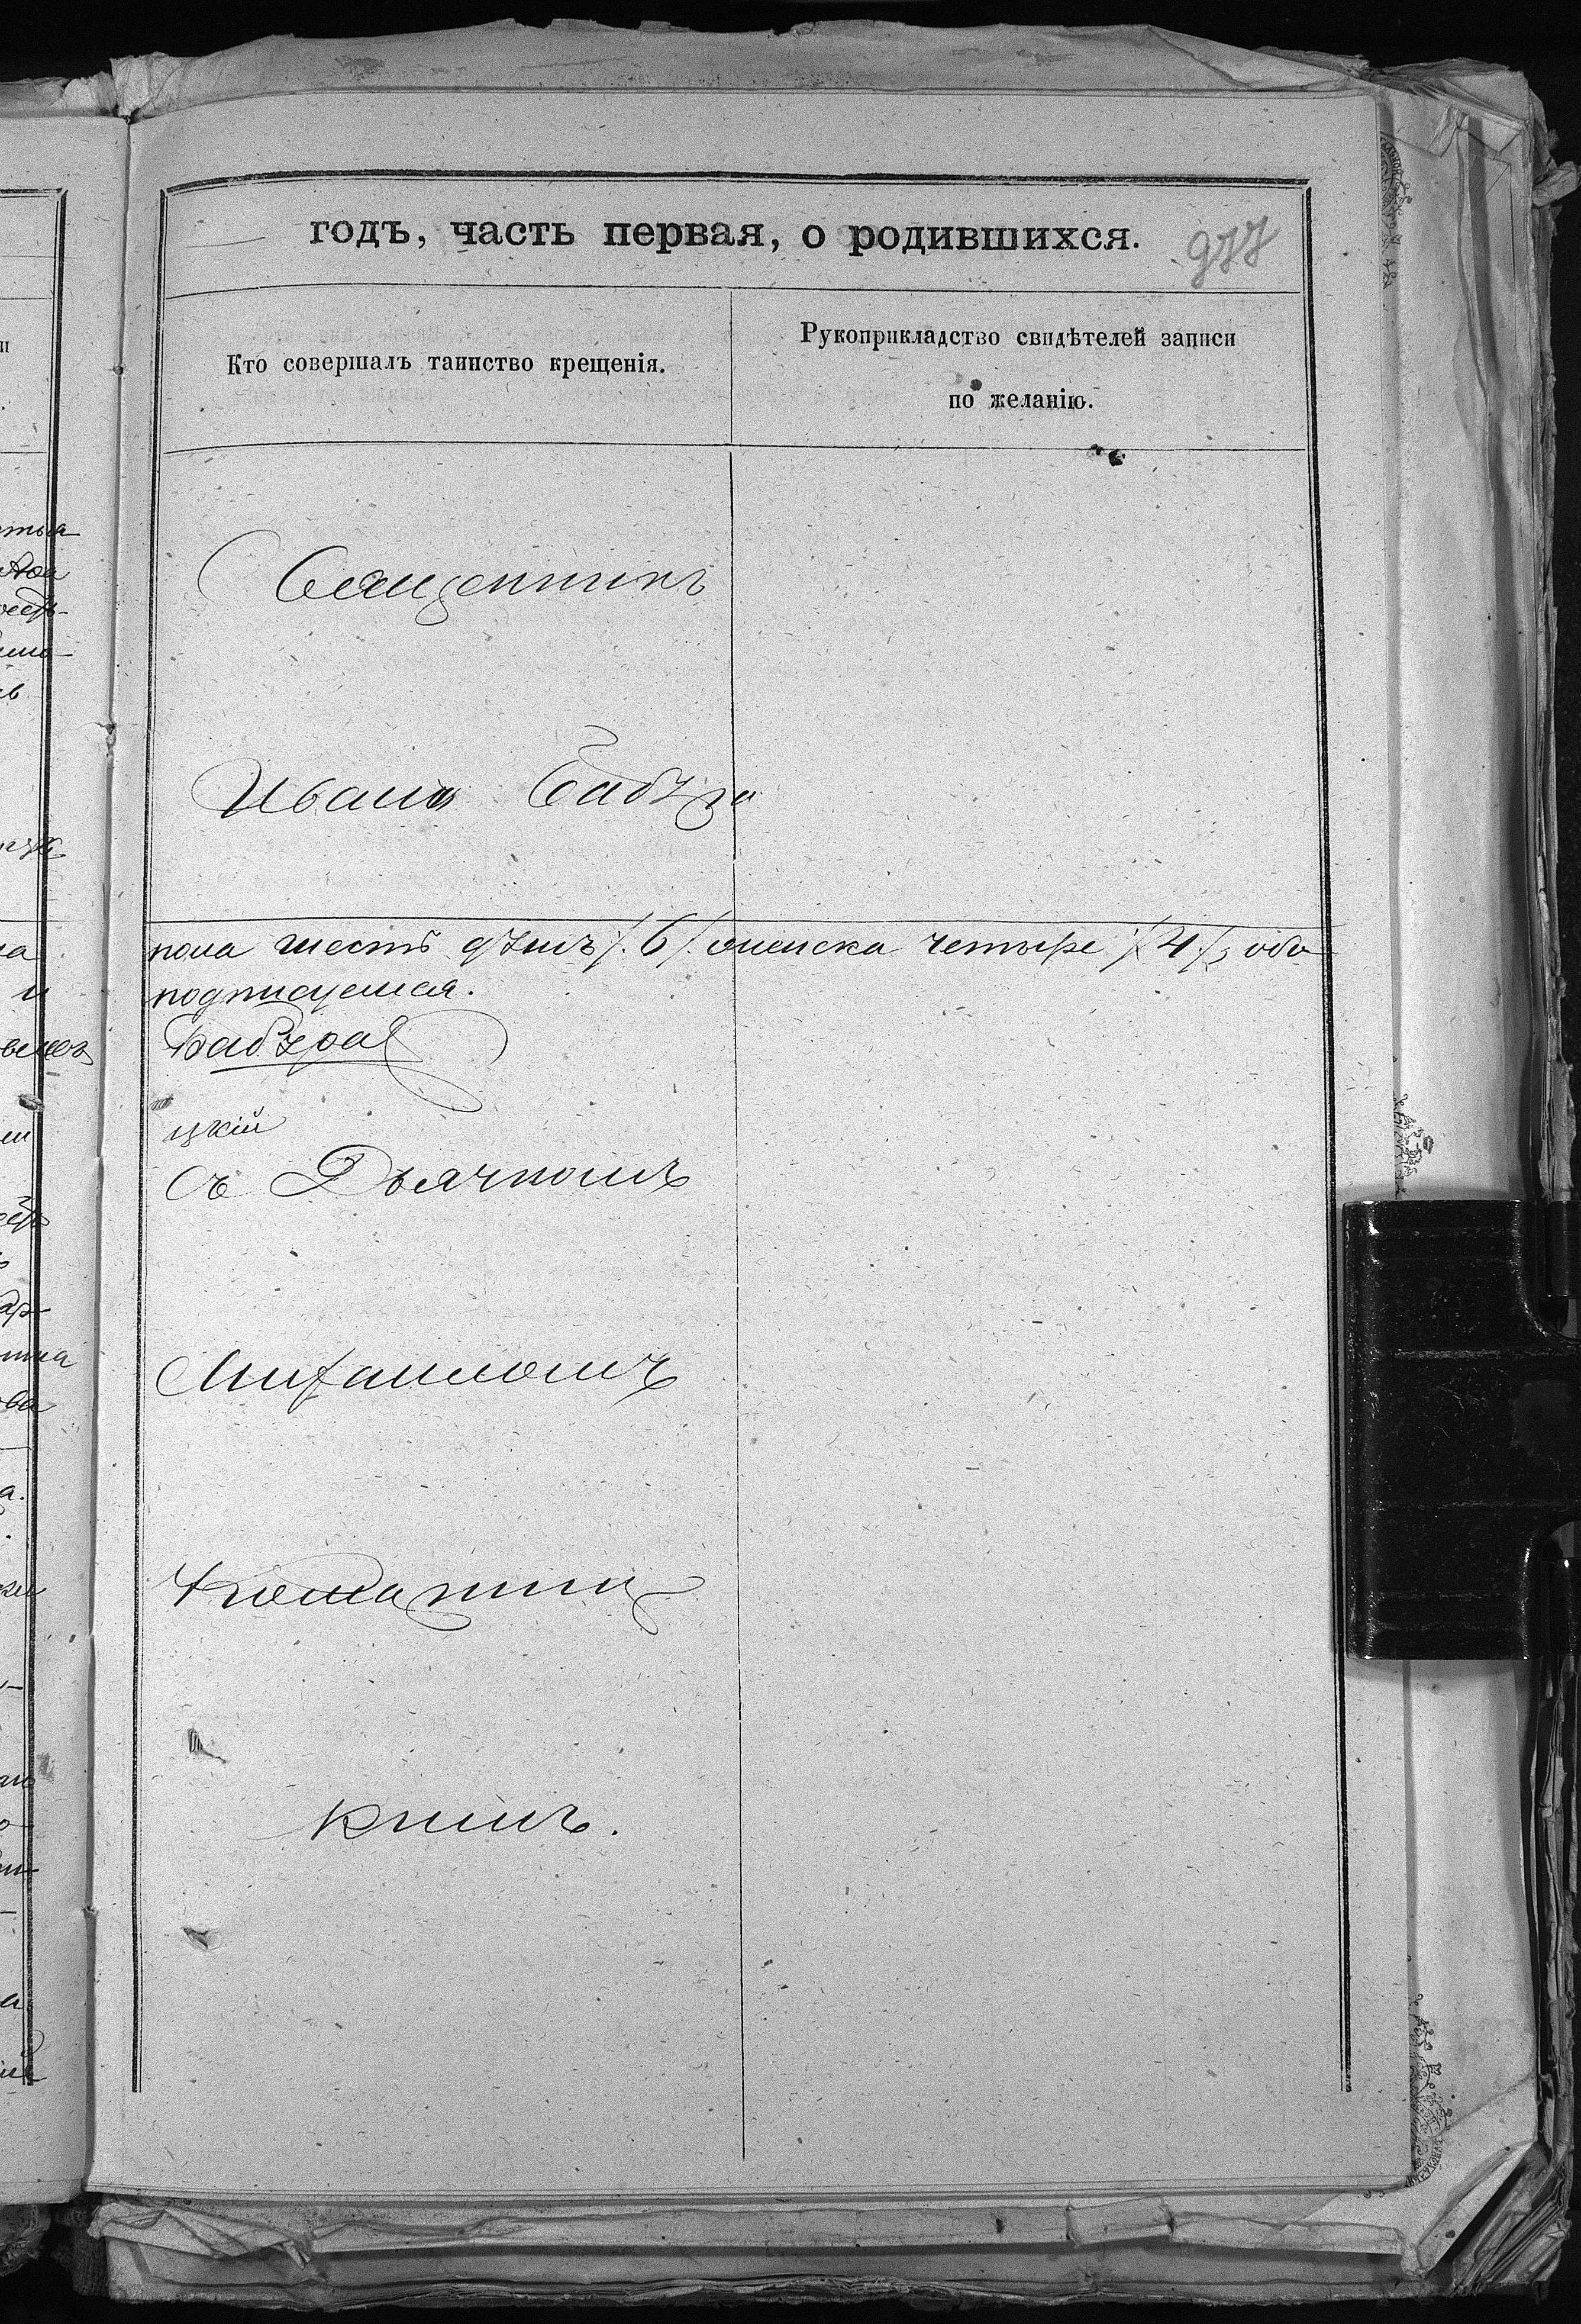 годъ, часть первая, о родившихся.
977
Кто совершалъ таинство крещенія.
Рукоприкладство свидѣтелей записи
по желанію.
Священникъ
Иванъ Бабура
пола шесть душъ /.6/. женска четыре /.4/., обо
подписуемся.
Бабура
цкій
Съ Дьячкомъ
Михаиломъ
кимъ.